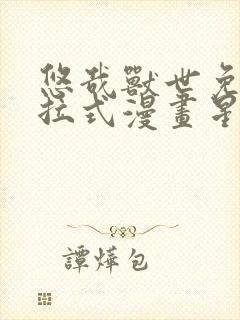 悠哉獸世免
拉式漫畫星
譚燁包